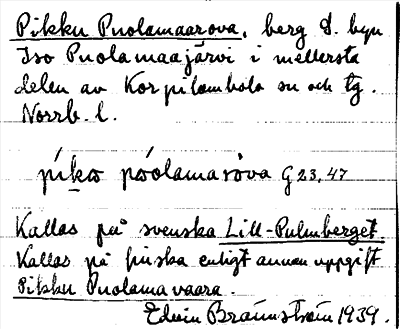 Pikku Puolamaarova, berg S. byn
Iso Puolamaajärvi i mellersta
delen av Korpilombolo sn och tg.
Norrb. l.
píkω pωolamarò̀va G 23, 47
Kallas på svenska Lill-Pulmberget.
Kallas på finska enligt annan uppgift
Pikku Puolamavaara.
Edvin Brännström 1939.